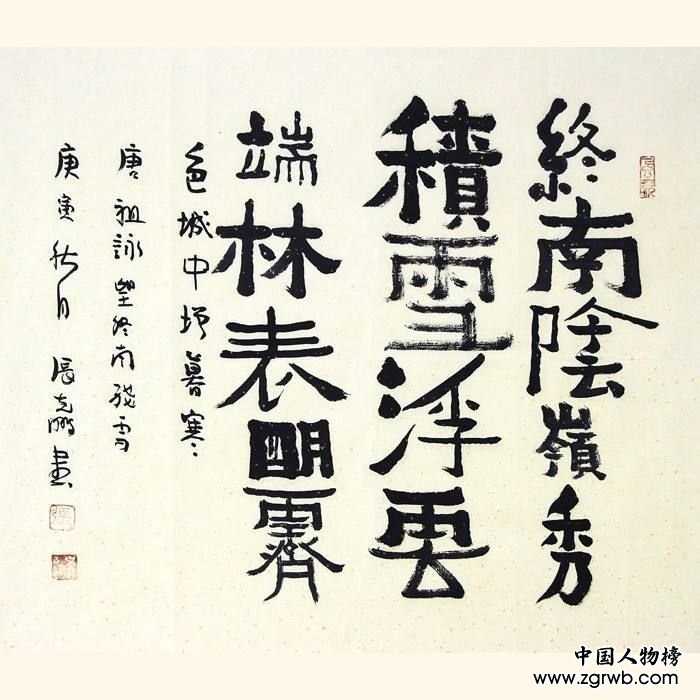 終南陰嶺秀
積雪浮雲
端林表明霽
色城中增暮寒
唐祖詠望終南殘雪
庚寅秋月張克鵬書
中国人物榜
www.zgrwb.com